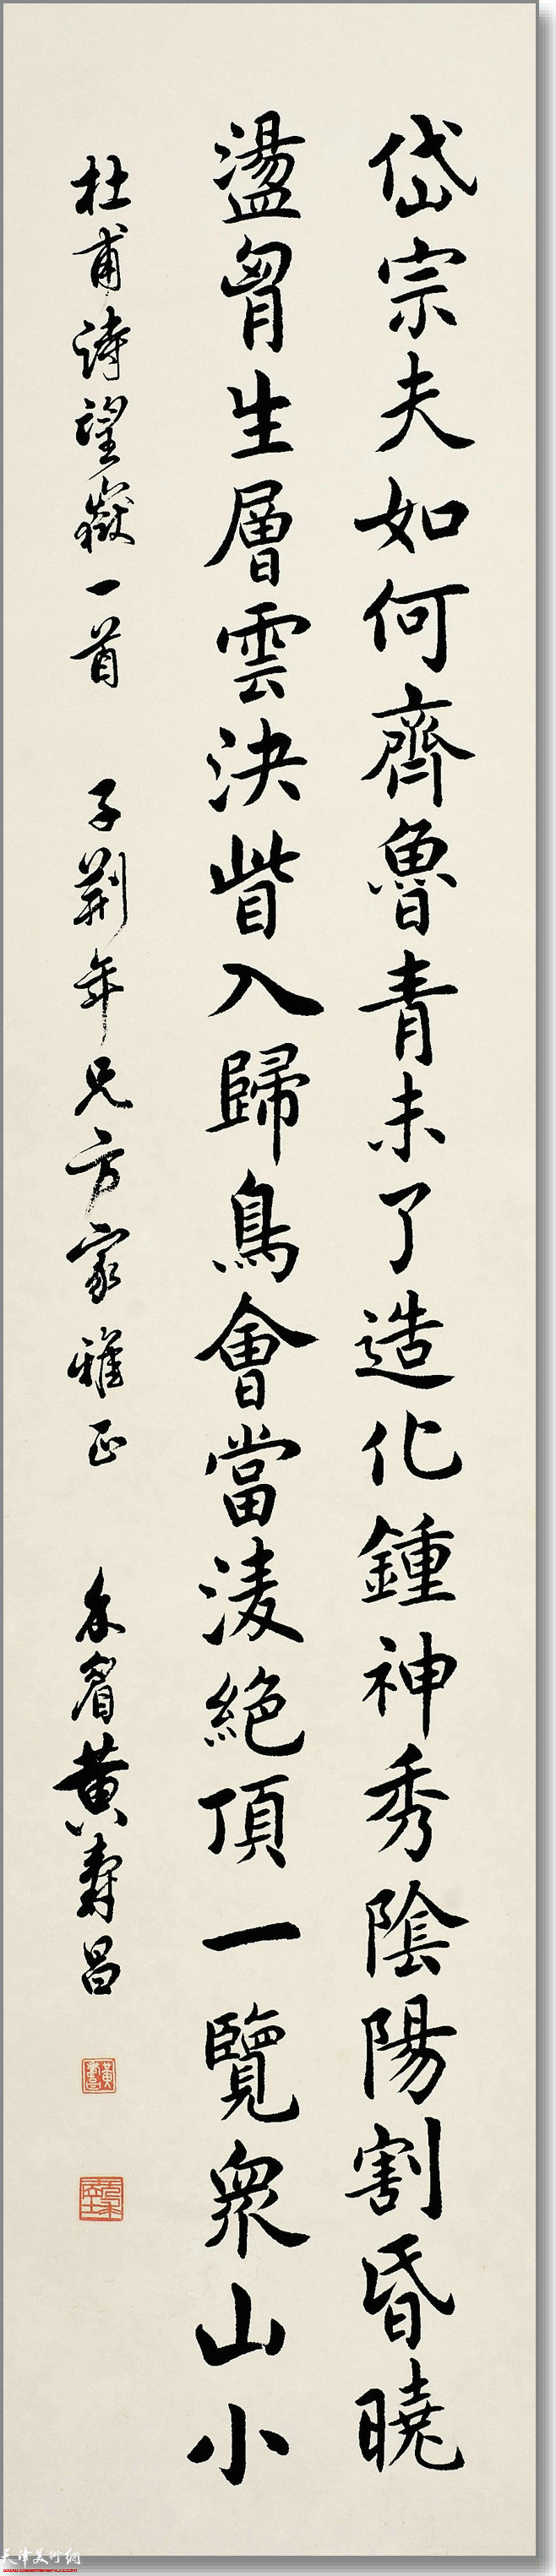 岱宗夫如何齊魯青未了造化鍾神秀陰陽割昏曉
盪胷生層雲決眥入歸鳥會當淩絕頂一覽衆山小
杜甫詩望嶽一首 子荊年兄方家雅正 黃壽昌
天津美術網